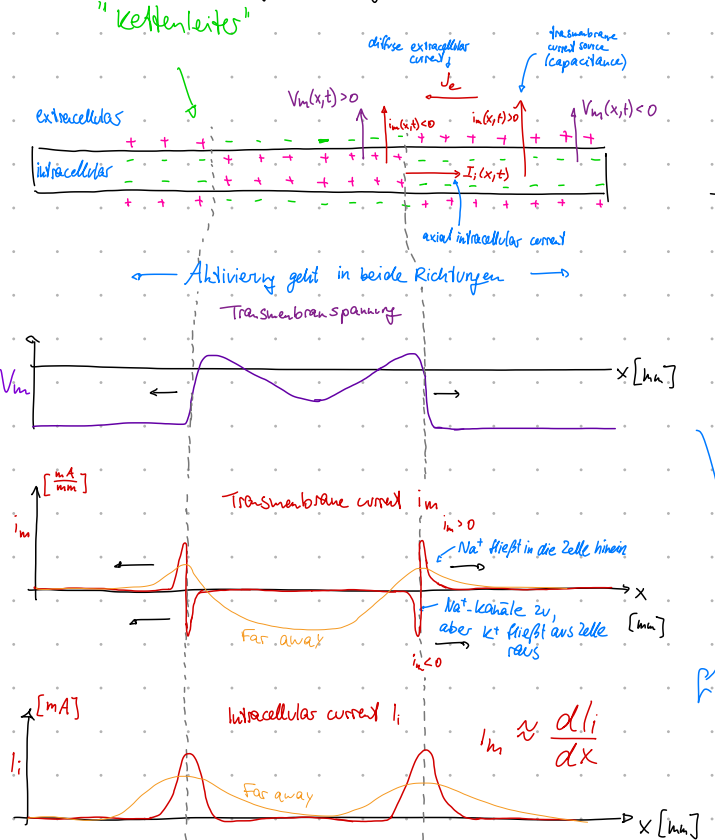 "Kettenleiter"
diffuse extracellular
current
Je
transmembrane
current source
(capacitance)
Vm(x,t)>0
im(x,t)<0
im(x,t)>0
Vm(x,t)<0
extracellular
intracellular
Ii(x,t)
axial intracellular current
Aktivierung geht in beide Richtungen
Transmembranspannung
Vm
x [mm]
[mA/mm]
im
Transmembrane current im
im>0
Na+ fließt in die Zelle hinein
x
[mm]
Na+-Kanäle zu,
aber K+ fließt aus Zelle
raus
Far away
im<0
[mA]
Ii
Intracellular current Ii
Im ≈ dIi/dx
Far away
x [mm]